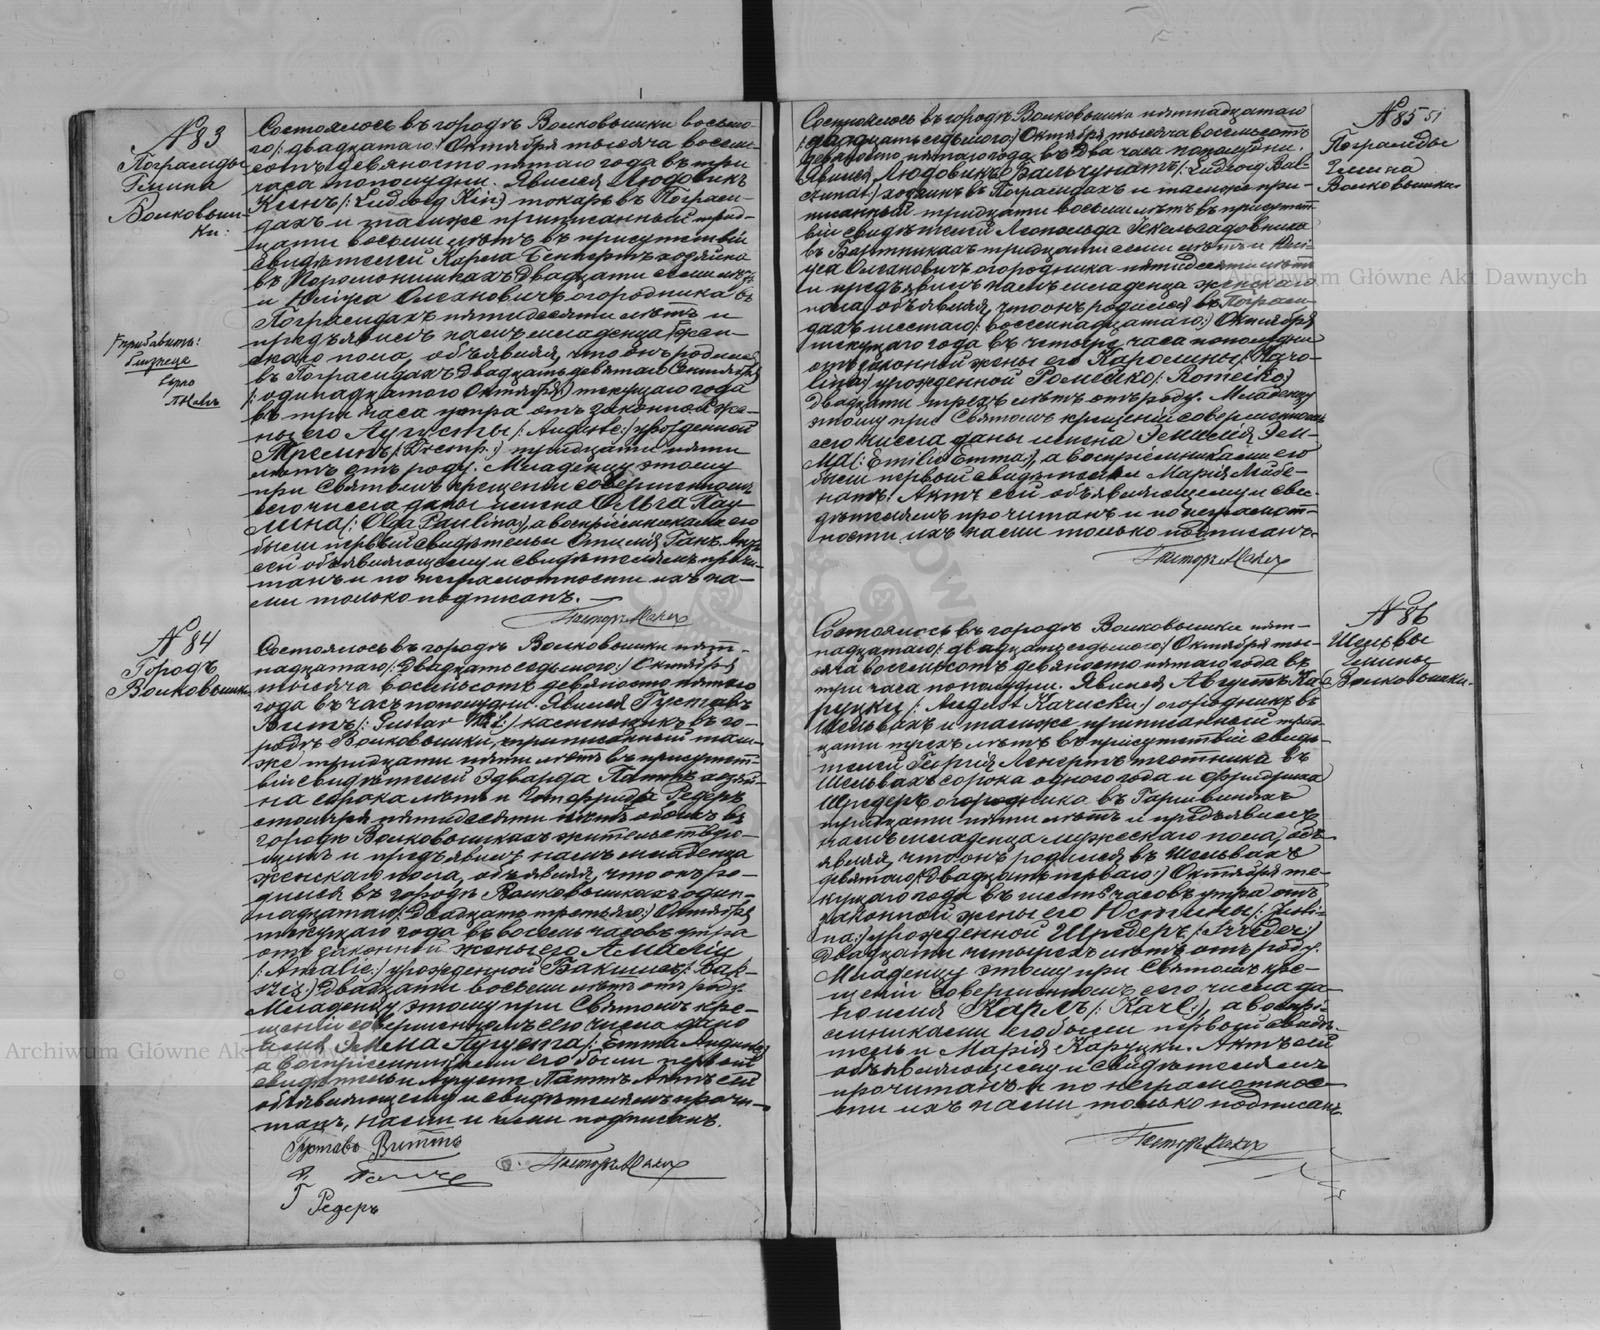 № 83
Пограмды
Гмина
Волковыш-
ки:
прибавить:
близнецъ
Состоялось въ городѣ Волковышки восьма-
го /: двадцатаго :/ Октября тысяча восемь-
сотъ девяносто пятаго года въ три
часа пополудни. Явился Людовикъ
Кинъ /: Ludwig Kin :/ токарь въ Пограм-
дахъ и тамже приписанный трид-
цати восьми лѣтъ въ присутствіи
свидѣтелей Карла хозяина
въ двадцати семи лѣтъ
и Юліуса Олехановичъ огородника въ
Пограмдахъ пятидесяти лѣтъ и
предъявилъ намъ младенца жен-
скаго пола, объявляя, что онъ родился
въ Пограмдахъ двадцать девятаго Сентября
/: одинадцатого Октября :/ текущаго года
въ три часа утра отъ законной же-
ны его Аугусты /: Auguste :/ урожденной
тридцати пяти
лѣтъ отъ роду. Младенцу этому
при Святомъ крещеніи совершенномъ
сего числа даны имена Ольга Пау-
лина /: Olga Paulina :/, а воспріемниками его
были первый свидѣтель и Отилія Ганъ. Актъ
сей объявляющему и свидѣтелямъ прочи-
танъ и по неграмотности ихъ на-
ми только подписанъ. —
Пасторъ
№ 84
Городъ
Волковышки
Состоялось въ городѣ Волковышки пят-
надцатаго /: двадцать седьмого :/ Октября
тысяча восемьсотъ девяносто пятаго
года въ часъ пополудни. Явился Густавъ
Виттъ /: Gustav Witt :/ каменьщикъ въ го-
родѣ Волковышки, приписанный там-
же тридцати пяти лѣтъ въ присутст-
віи свидѣтелей Эдварда Паттъ хозяи-
на сорока лѣтъ и Готфрида Редеръ
столяра пятидесяти лѣтъ обоихъ въ
городѣ Волковышкахъ жительствую-
щихъ и предъявилъ намъ младенца
женскаго пола, объявляя, что онъ ро-
дился въ городѣ Волковышкахъ один-
надцатаго /: двадцать третьяго :/ Октября
текущаго года въ восемь часовъ утра
отъ законной жены его Амаліи
/: Amalie :/ урожденной Бакшисъ /: Bak-
szis :/ двадцати восьми лѣтъ отъ роду.
Младенцу этому при Святомъ кре-
щеніи совершенномъ сего числа дано
имя Эмма Аугуста /: Emma Augusta :/
а воспріемниками его были первый
свидѣтель и Аугуста Паттъ. Актъ сей
объявляющему и свидѣтелямъ прочи-
танъ, нами и ими подписанъ.
Густавъ Виттъ
Пасторъ
Г Редеръ
№ 85 51
Пограмды
Гмина
Волковышки
Состоялось въ городѣ Волковышки пятнадцатаго
/: двадцать седьмого :/ Октября тысяча восемьсотъ
девяносто пятаго года въ два часа пополудни.
Явился Людовикъ Бальчунатъ /: Ludwig Bal-
czunat :/ хозяинъ въ Пограмдахъ и тамже при-
писанный тридцати восьми лѣтъ въ присутст-
віи свидѣтелей Леопольда
въ Бартникахъ тридцати семи лѣтъ и Юлі-
уса Олехановичъ огородника пятидесяти лѣтъ
и предъявилъ намъ младенца женскаго
пола, объявляя, что онъ родился въ Пограм-
дахъ шестаго /: восемнадцатаго :/ Октября
текущаго года въ четыре часа пополудни
отъ законной жены его Каролины /: Karo-
lina :/ урожденной Ромейко /: Romeiko :/
двадцати трехъ лѣтъ отъ роду. Младенцу
этому при Святомъ крещеніи совершенномъ
сего числа даны имена Эмилія Эм-
ма /: Emilie Emma :/, а воспріемниками его
были первый свидѣтель и Марія
Актъ сей объявляющему и сви-
дѣтелямъ прочитанъ и по неграмот-
ности ихъ нами только подписанъ.
Пасторъ
№ 86
Шельвы
Гмины
Волковышки.
Состоялось въ городѣ Волковышки пят-
надцатаго /: двадцать седьмого :/ Октября ты-
сяча восемьсотъ девяносто пятаго года въ
три часа пополудни. Явился Августъ Ка-
руцки /: August Karucki :/ огородникъ въ
Шельвахъ и тамже приписанный трид-
цати трехъ лѣтъ въ присутствіи свидѣ-
телей Георгія Ленертъ плотника въ
Шельвахъ сорока одного года и Фридриха
Шредеръ огородника въ
тридцати пяти лѣтъ и предъявилъ
намъ младенца мужескаго пола, объ-
являя, что онъ родился въ Шельвахъ
девятаго /: двадцать перваго :/ Октября те-
кущаго года въ шесть часовъ утра отъ
законной жены его Юстины /: Justi-
na :/ урожденной Шредеръ /: Schreder :/
двадцати четырехъ лѣтъ отъ роду.
Младенцу этому при Святомъ кре-
щеніи совершенномъ сего числа да-
но имя Карлъ /: Karl :/, а воспрі-
емниками его были первый свидѣ-
тель и Марія Каруцки. Актъ сей
объявляющему и свидѣтелямъ
прочитанъ и по неграмотнос-
ти ихъ нами только подписанъ.
Пасторъ
Archiwum Główne Akt Dawnych
Archiwum Główne Akt Dawnych